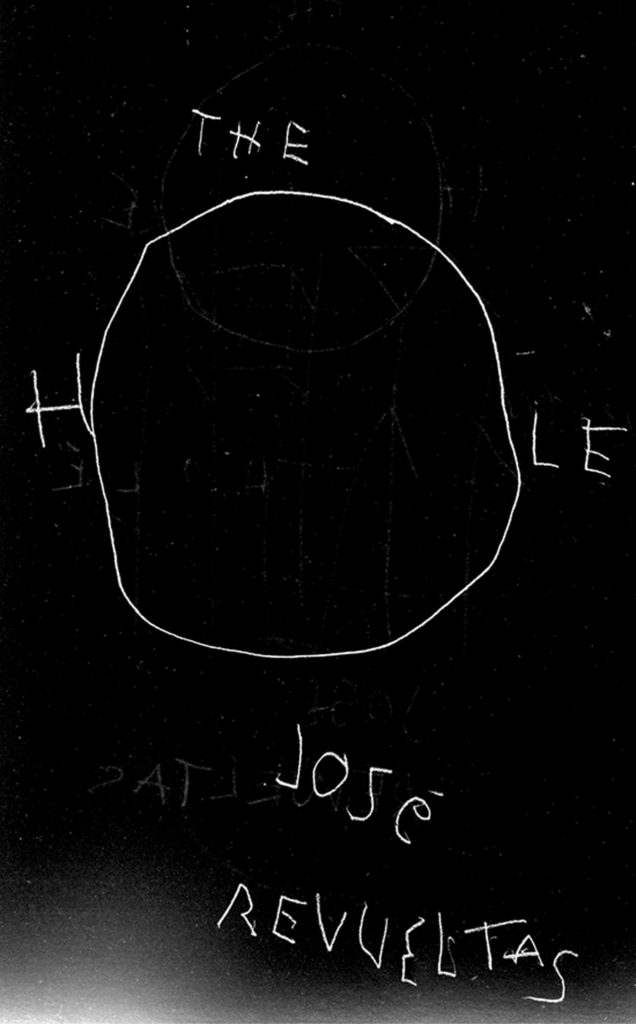 THE
HOLE
JOSé
REVUELTAS